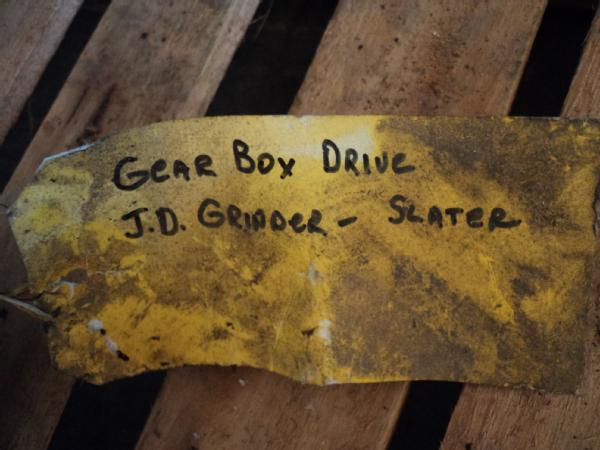 Gear Box Drive
J.D. Grinder - Slater